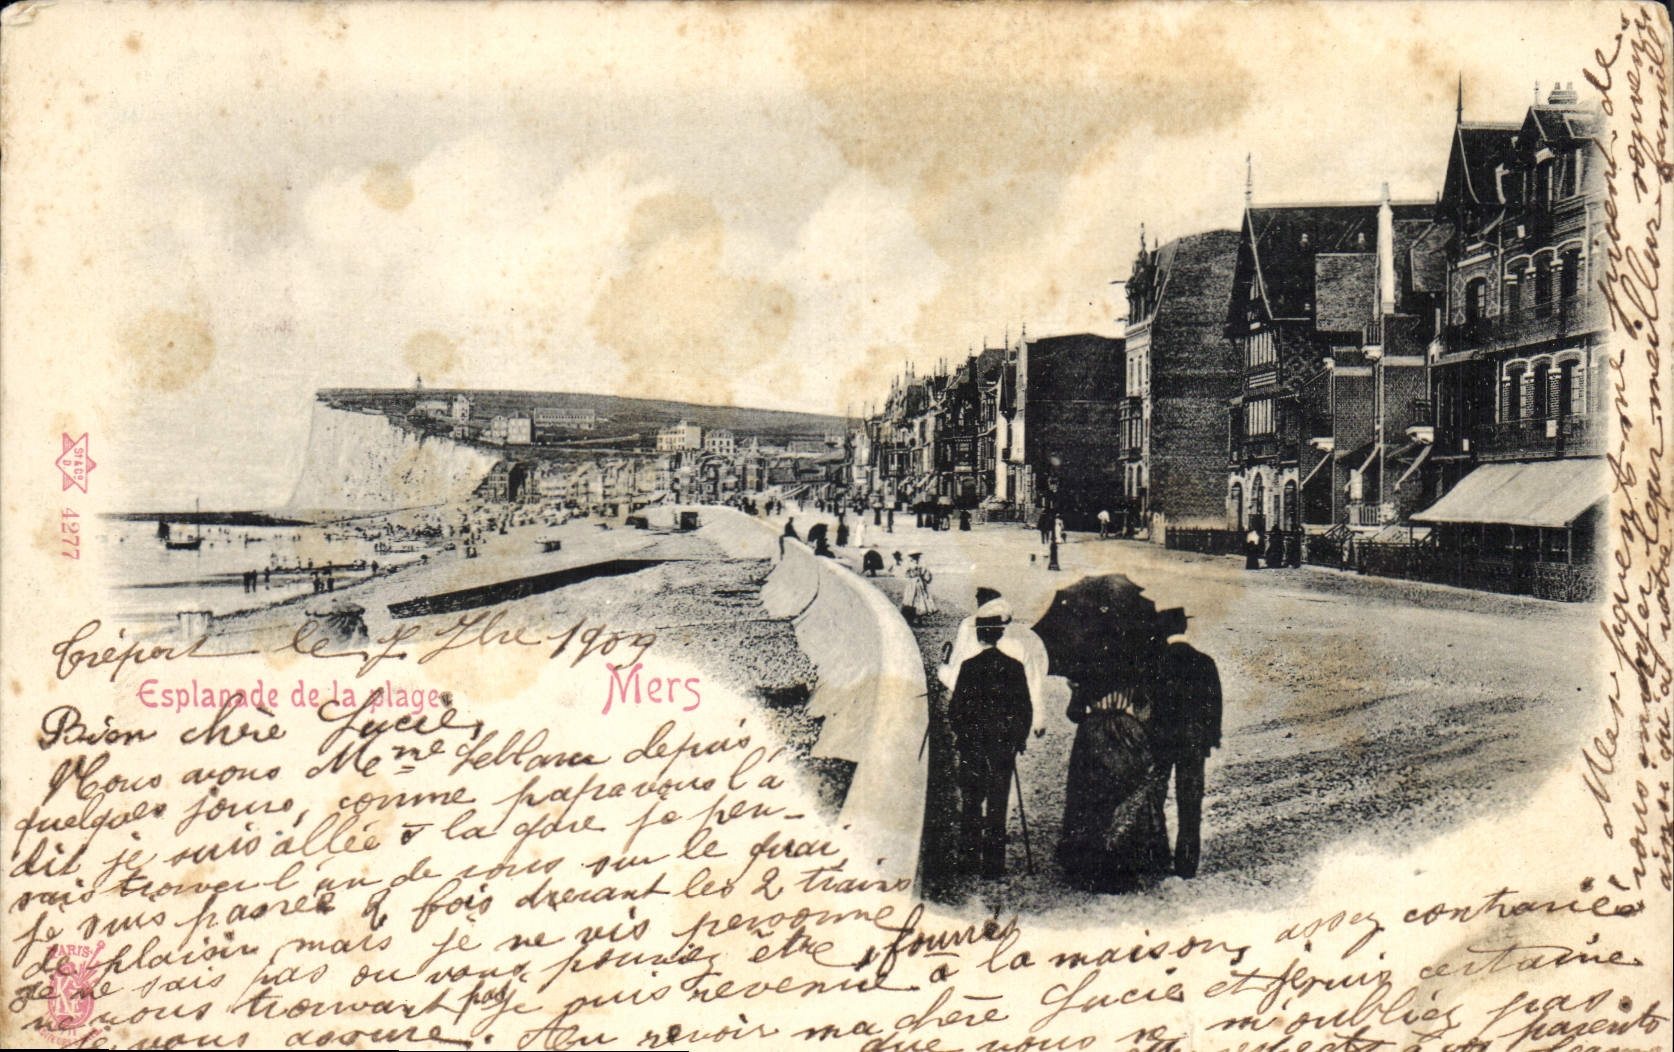 St & Co
D
4277
Tréport le 7 7bre 1909
Esplanade de la plage Mers
Bien chère Lucie,
Nous avons Mme Leblanc depuis
quelques jours, comme papa vous l'a
dit je suis allée à la gare je pen-
sais trouver l'un de vous sur le quai,
je suis passée 2 fois devant les 2 trains
de plaisir mais je ne vis personne
je ne sais pas où vous pouviez être fourrés
ne vous trouvant pas je suis revenue à la maison, assez contrariée
je vous assure. Au revoir ma chère Lucie et je suis certaine
que vous ne m'oubliez pas.
respects à vos parents
Mes parents me prient de
vous envoyer leur meilleur souvenir
ainsi qu'à votre famille
PARIS